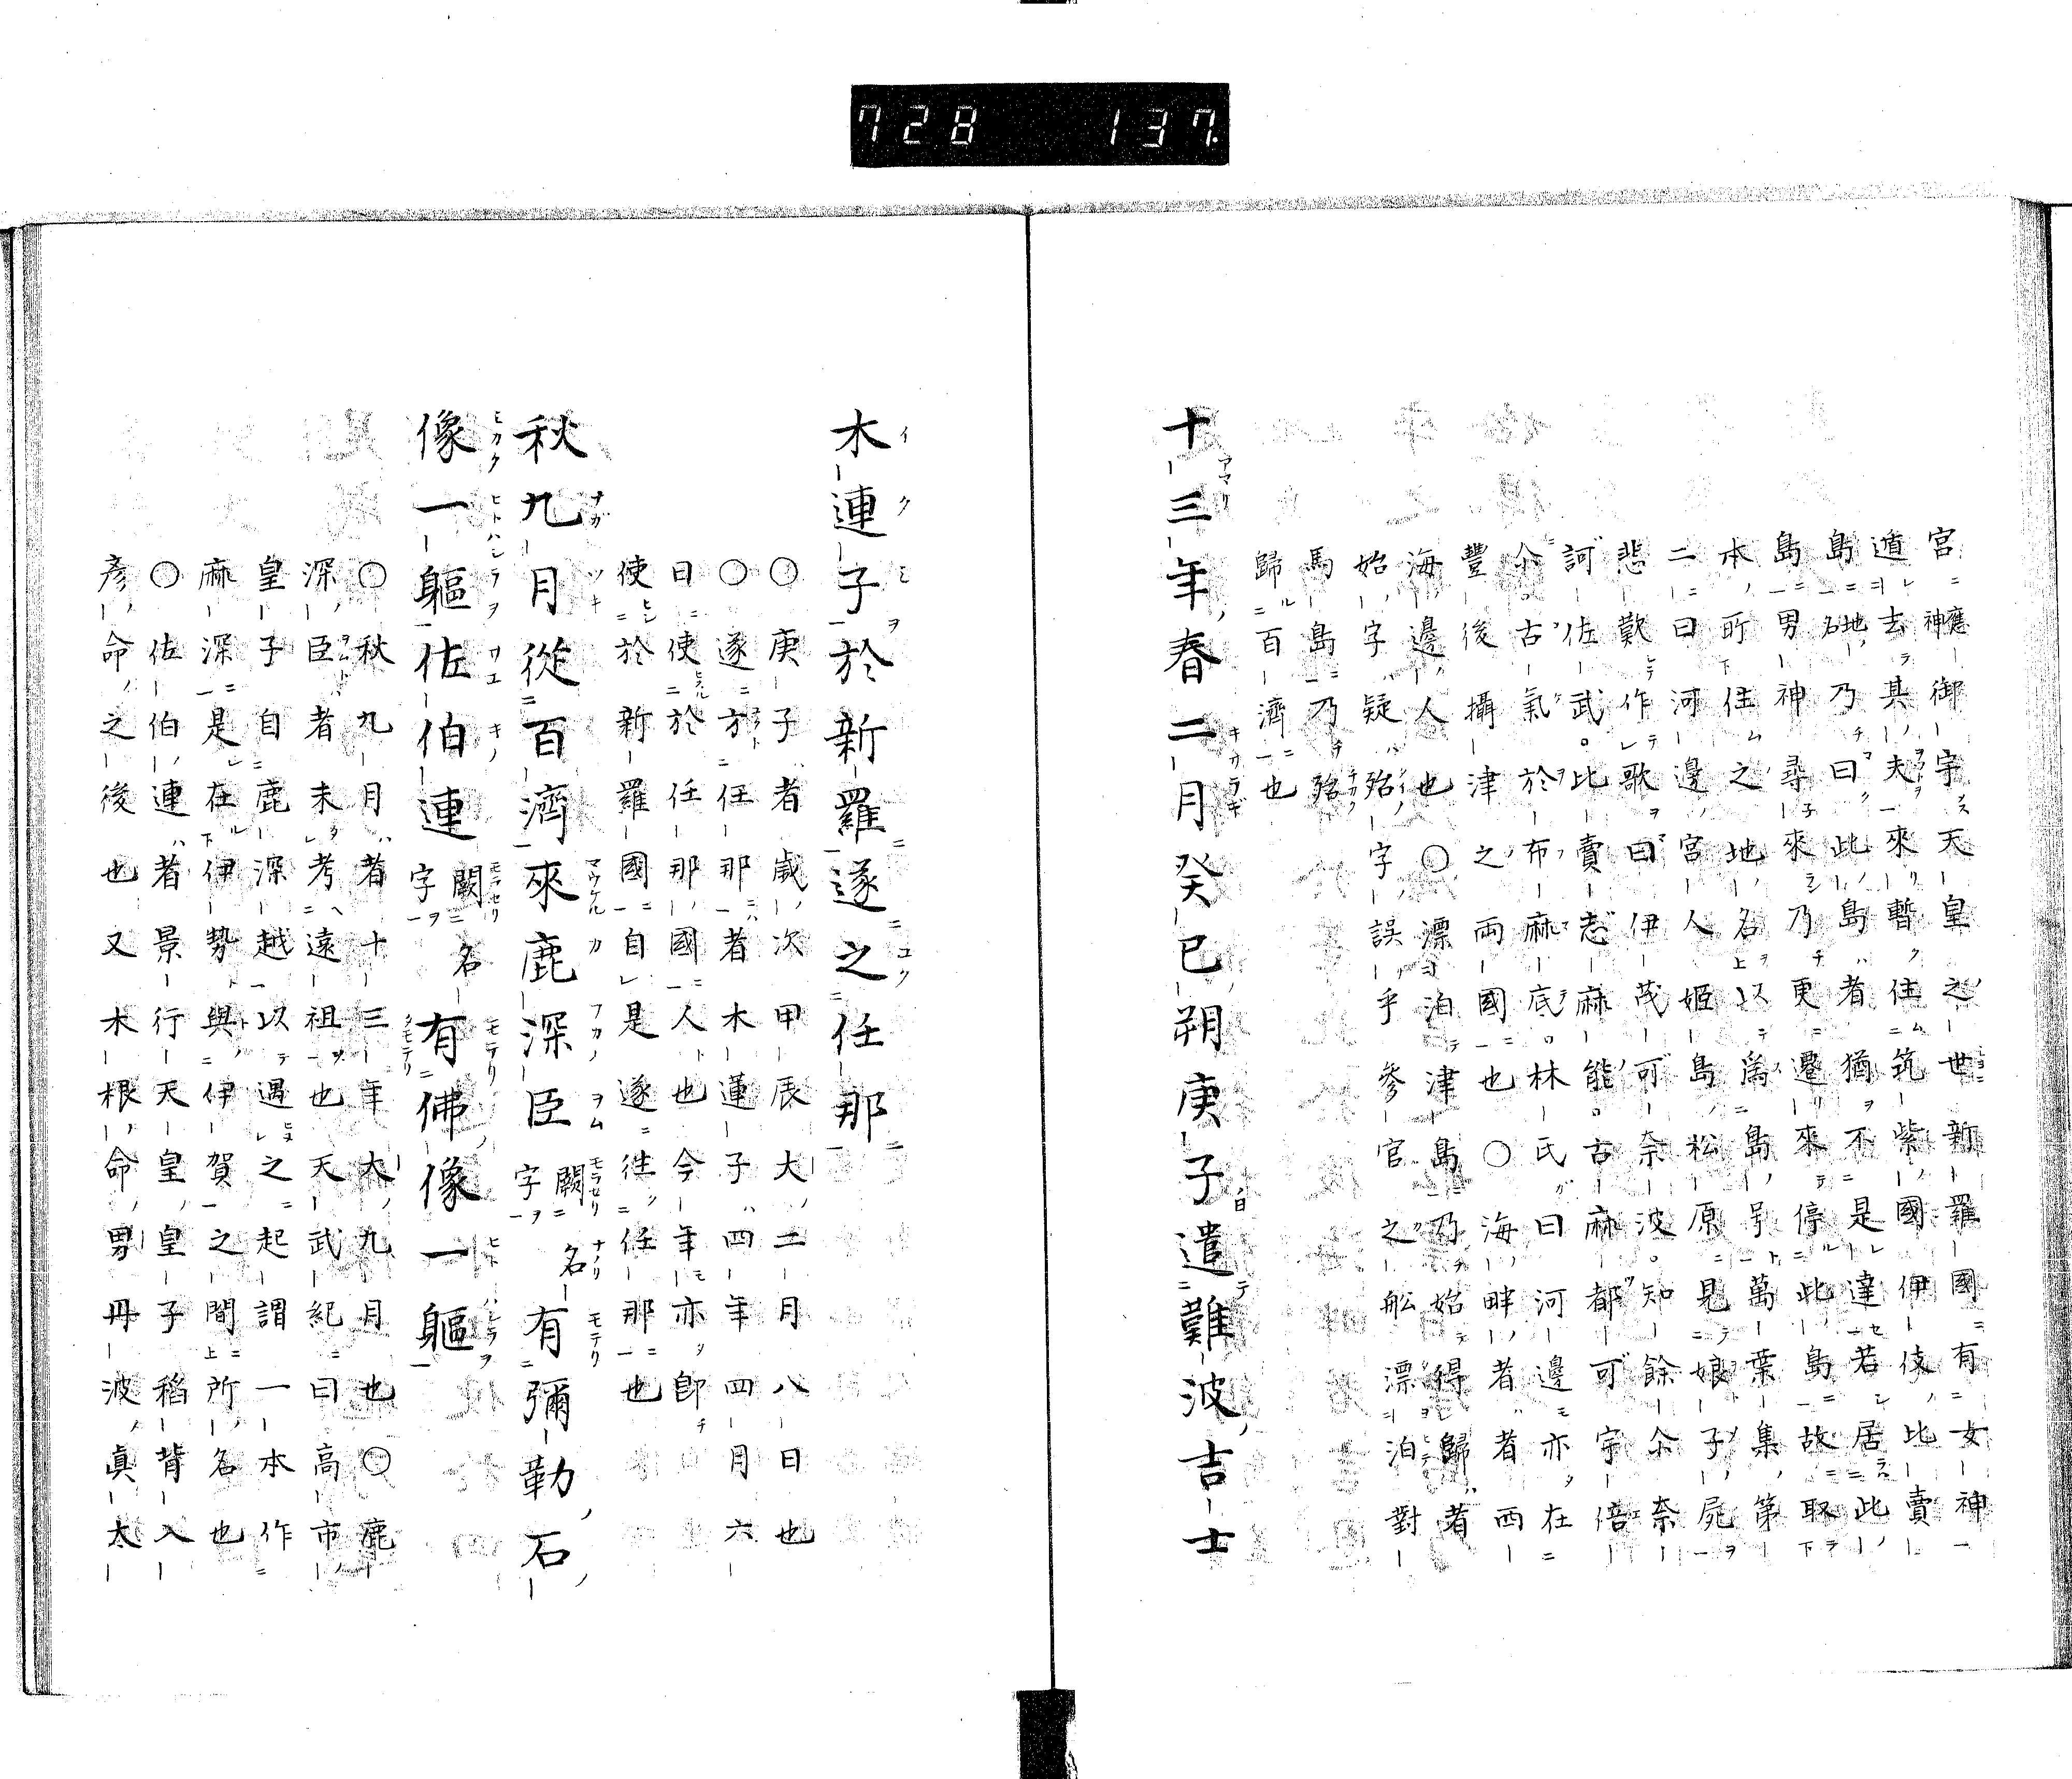 728 137
宮應神御宇天皇之世新羅國有女神
遁去其夫來暫住筑紫國伊伎比賣
島地名乃曰此島者猶不是達若居此
島男神尋來乃更遷來停此島故取
本所住之地名以為島号萬葉集第
二曰河邊宮人姫島松原見娘子屍
悲歎作歌曰伊茂可奈波知餘尒奈
訶佐武比賣志麻能古麻都可宇倍
尒古氣於布麻底林氏曰河邊亦在
豐後攝津之兩國也○海畔者者西
海邊人也○漂泊津島乃始得歸者
始字疑殆字誤乎參官之舩漂泊對
馬島乃殆
歸百濟也
十三年春二月癸巳朔庚子遣難波吉士
木連子於新羅遂之任那
○庚子者歳次甲辰大二月八日也
○遂方任那者木蓮子四年四月六
日使於任那國人也今年亦卽
使於新羅國自是遂往任那也
秋九月從百濟來鹿深臣闕名字有彌勒石
像一軀佐伯連闕名字有佛像一軀
○秋九月者十三年大九月也○鹿
深臣者未考遠祖也天武紀曰高市
皇子自鹿深越以遇之起謂一本作
麻深是在伊勢與伊賀之間所名也
○佐伯連者景行天皇皇子稻背入
彥命之後也又木根命男丹波眞太